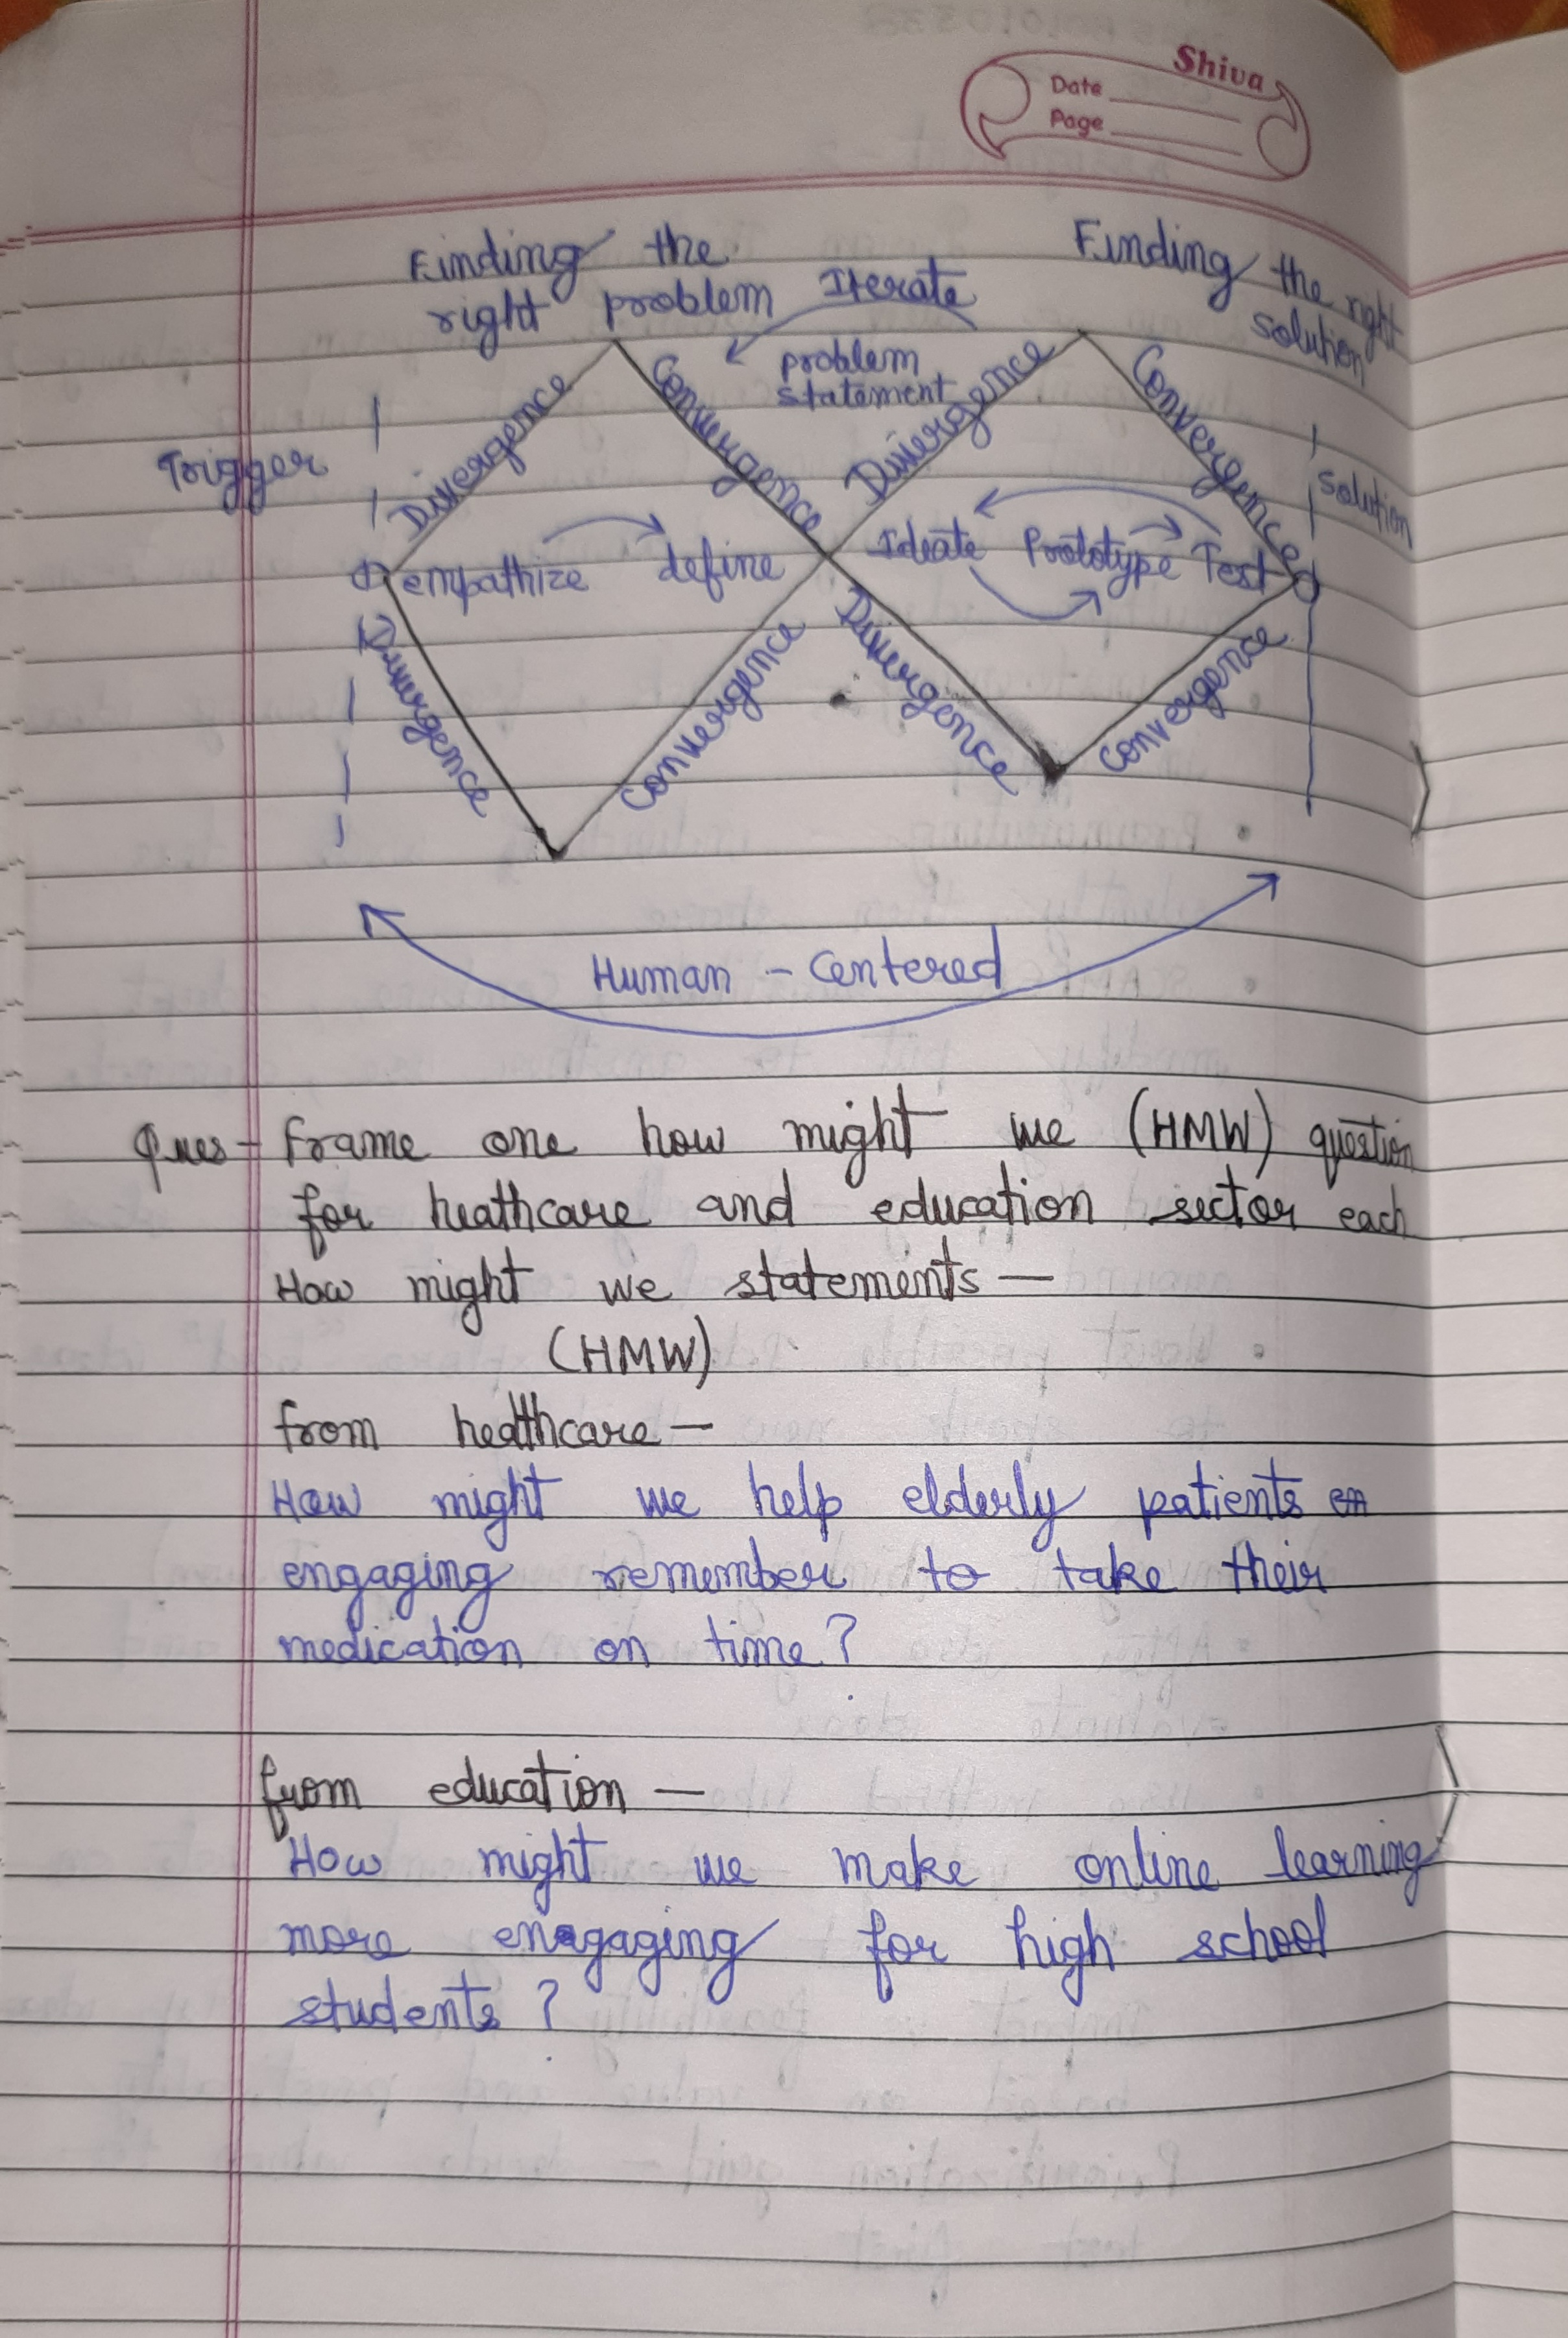 Shiva
Date
Page
Finding the
right problem
Iterate
Finding the right
solution
problem
statement
Trigger
Divergence
Convergence
Divergence
Convergence
solution
empathize define
Ideate Prototype Test
Divergence
Convergence
Divergence
Convergence
Human - Centered
Ques - Frame one how might we (HMW) question
for heathcare and education sector each
How might we statements —
(HMW)
from healthcare —
How might we help elderly patients en
engaging remember to take their
medication on time?
from education —
How might we make online learning
more engaging for high school
students?